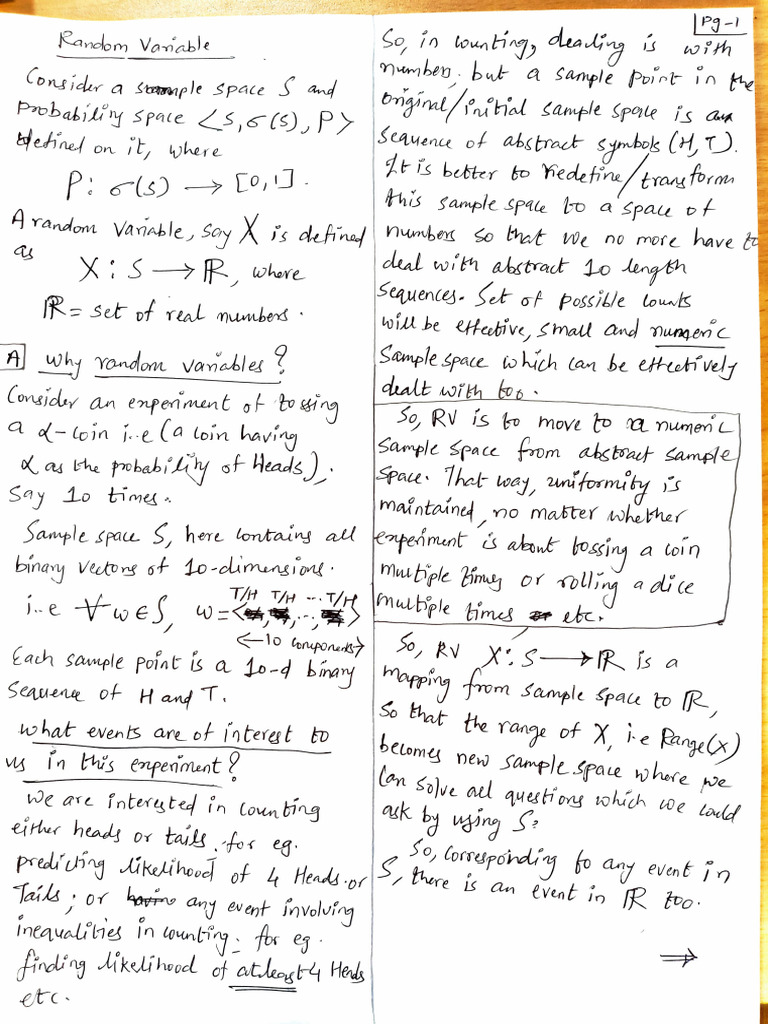 Random Variable
Consider a sample space S and
probability space <S, σ(S), P>
defined on it, where
P: σ(S) → [0,1].
A random variable, say X is defined
as
X : S → ℝ, where
ℝ = set of real numbers.
A why random variables?
Consider an experiment of tossing
a α-coin i.e (a coin having
α as the probability of Heads),
say 10 times.
Sample space S, here contains all
binary vectors of 10-dimensions.
T/H T/H ... T/H
i.e ∀ w ∈ S, w = < , , .., >
←10 components→
Each sample point is a 10-d binary
sequence of H and T.
what events are of interest to
us in this experiment?
we are interested in counting
either heads or tails. for eg.
predicting likelihood of 4 Heads or
Tails; or any event involving
inequalities in counting. for eg.
finding likelihood of atleast 4 Heads
etc.
Pg-1
So, in counting, dealing is with
numbers, but a sample point in the
original/initial sample space is a
sequence of abstract symbols (H, T).
It is better to redefine/transform
this sample space to a space of
numbers so that we no more have to
deal with abstract 10 length
sequences. Set of possible counts
will be effective, small and numeric
sample space which can be effectively
dealt with too.
So, RV is to move to a numeric
sample space from abstract sample
space. That way, uniformity is
maintained, no matter whether
experiment is about tossing a coin
multiple times or rolling a dice
multiple times etc.
So, RV X: S → ℝ is a
mapping from sample space to ℝ,
so that the range of X, i.e Range(X)
becomes new sample space where we
can solve all questions which we could
ask by using S.
So, corresponding to any event in
S, there is an event in ℝ too.
⇒